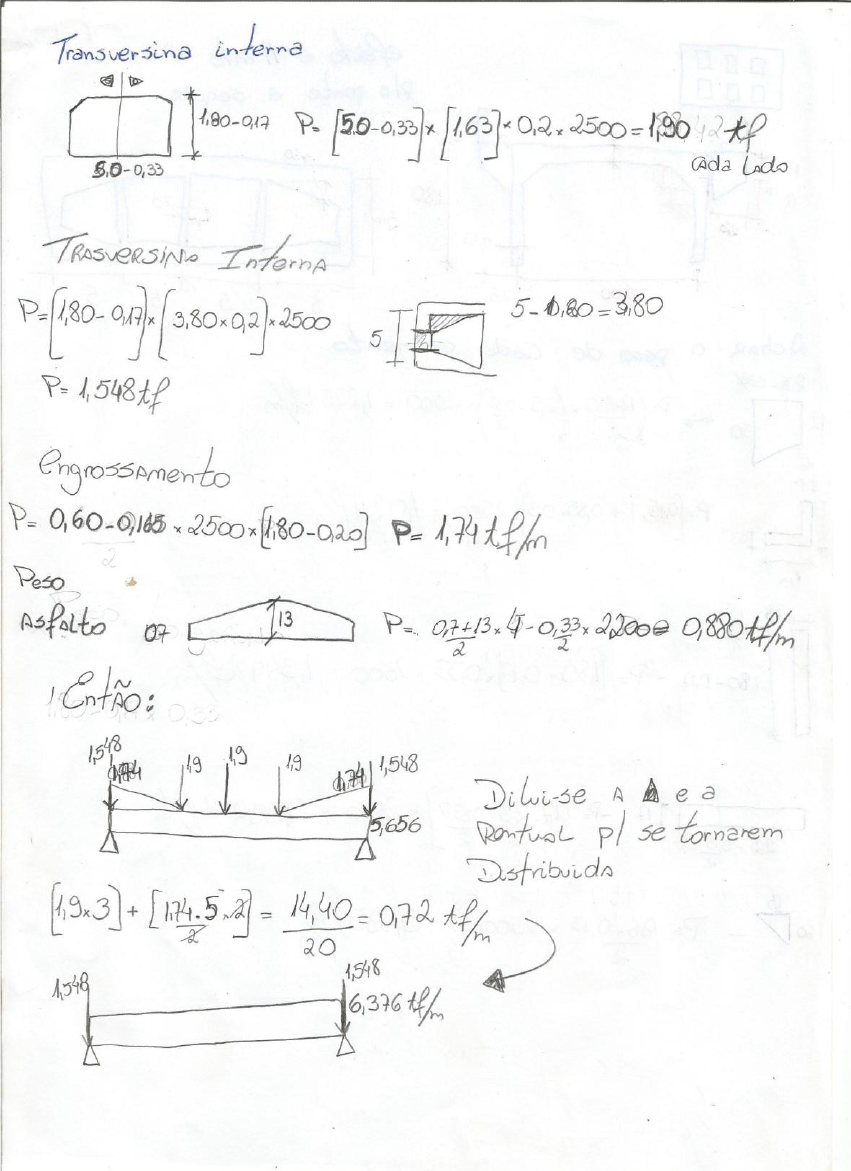 Transversina interna
1,80-0,17
P= [5,0-0,33] × [1,63] × 0,2 × 2500 = 1,90 tf
cada lado
5,0-0,33
Trasversino Interna
P= [1,80-0,17] × [3,80×0,2] × 2500
5
5-0,80=3,80
P= 1,548 tf
Engrossamento
P= 0,60-0,165 × 2500 × [1,80-0,20] P= 1,74 tf/m
2
Peso
Asfalto 07 13 P= 0,7+13 × - 0,33 × 2200= 0,880 tf/m
2 2
Então:
1,548 1,9 1,9 1,9 1,548
1,74 1,74
5,656
Dilui-se a e a
Pontual p/ se tornarem
Distribuida
[1,9×3] + [1,74.5 .2] = 14,40 = 0,72 tf/m
2 20
1,548 1,548
6,376 tf/m